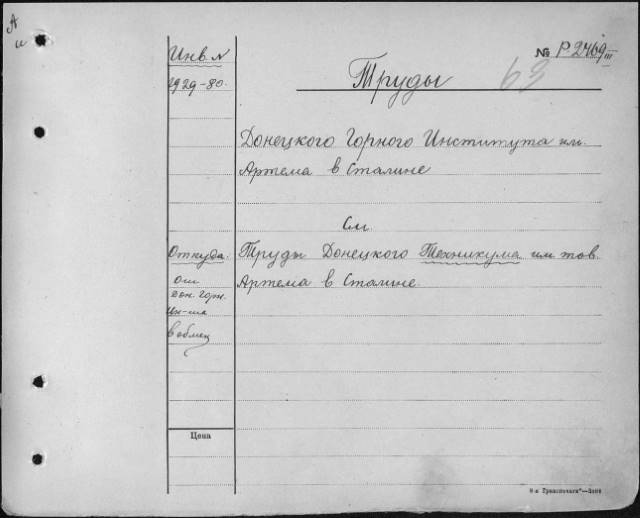 А
и
Инв. №
1929-80.
№ Р2469 III
63
Труды
Донецкого Горного Института им.
Артема в Сталине
См.
Откуда.
Труды Донецкого Техникума им тов.
от
Артема в Сталине.
Дон. Горн.
Ин-та
в обмен
Цена